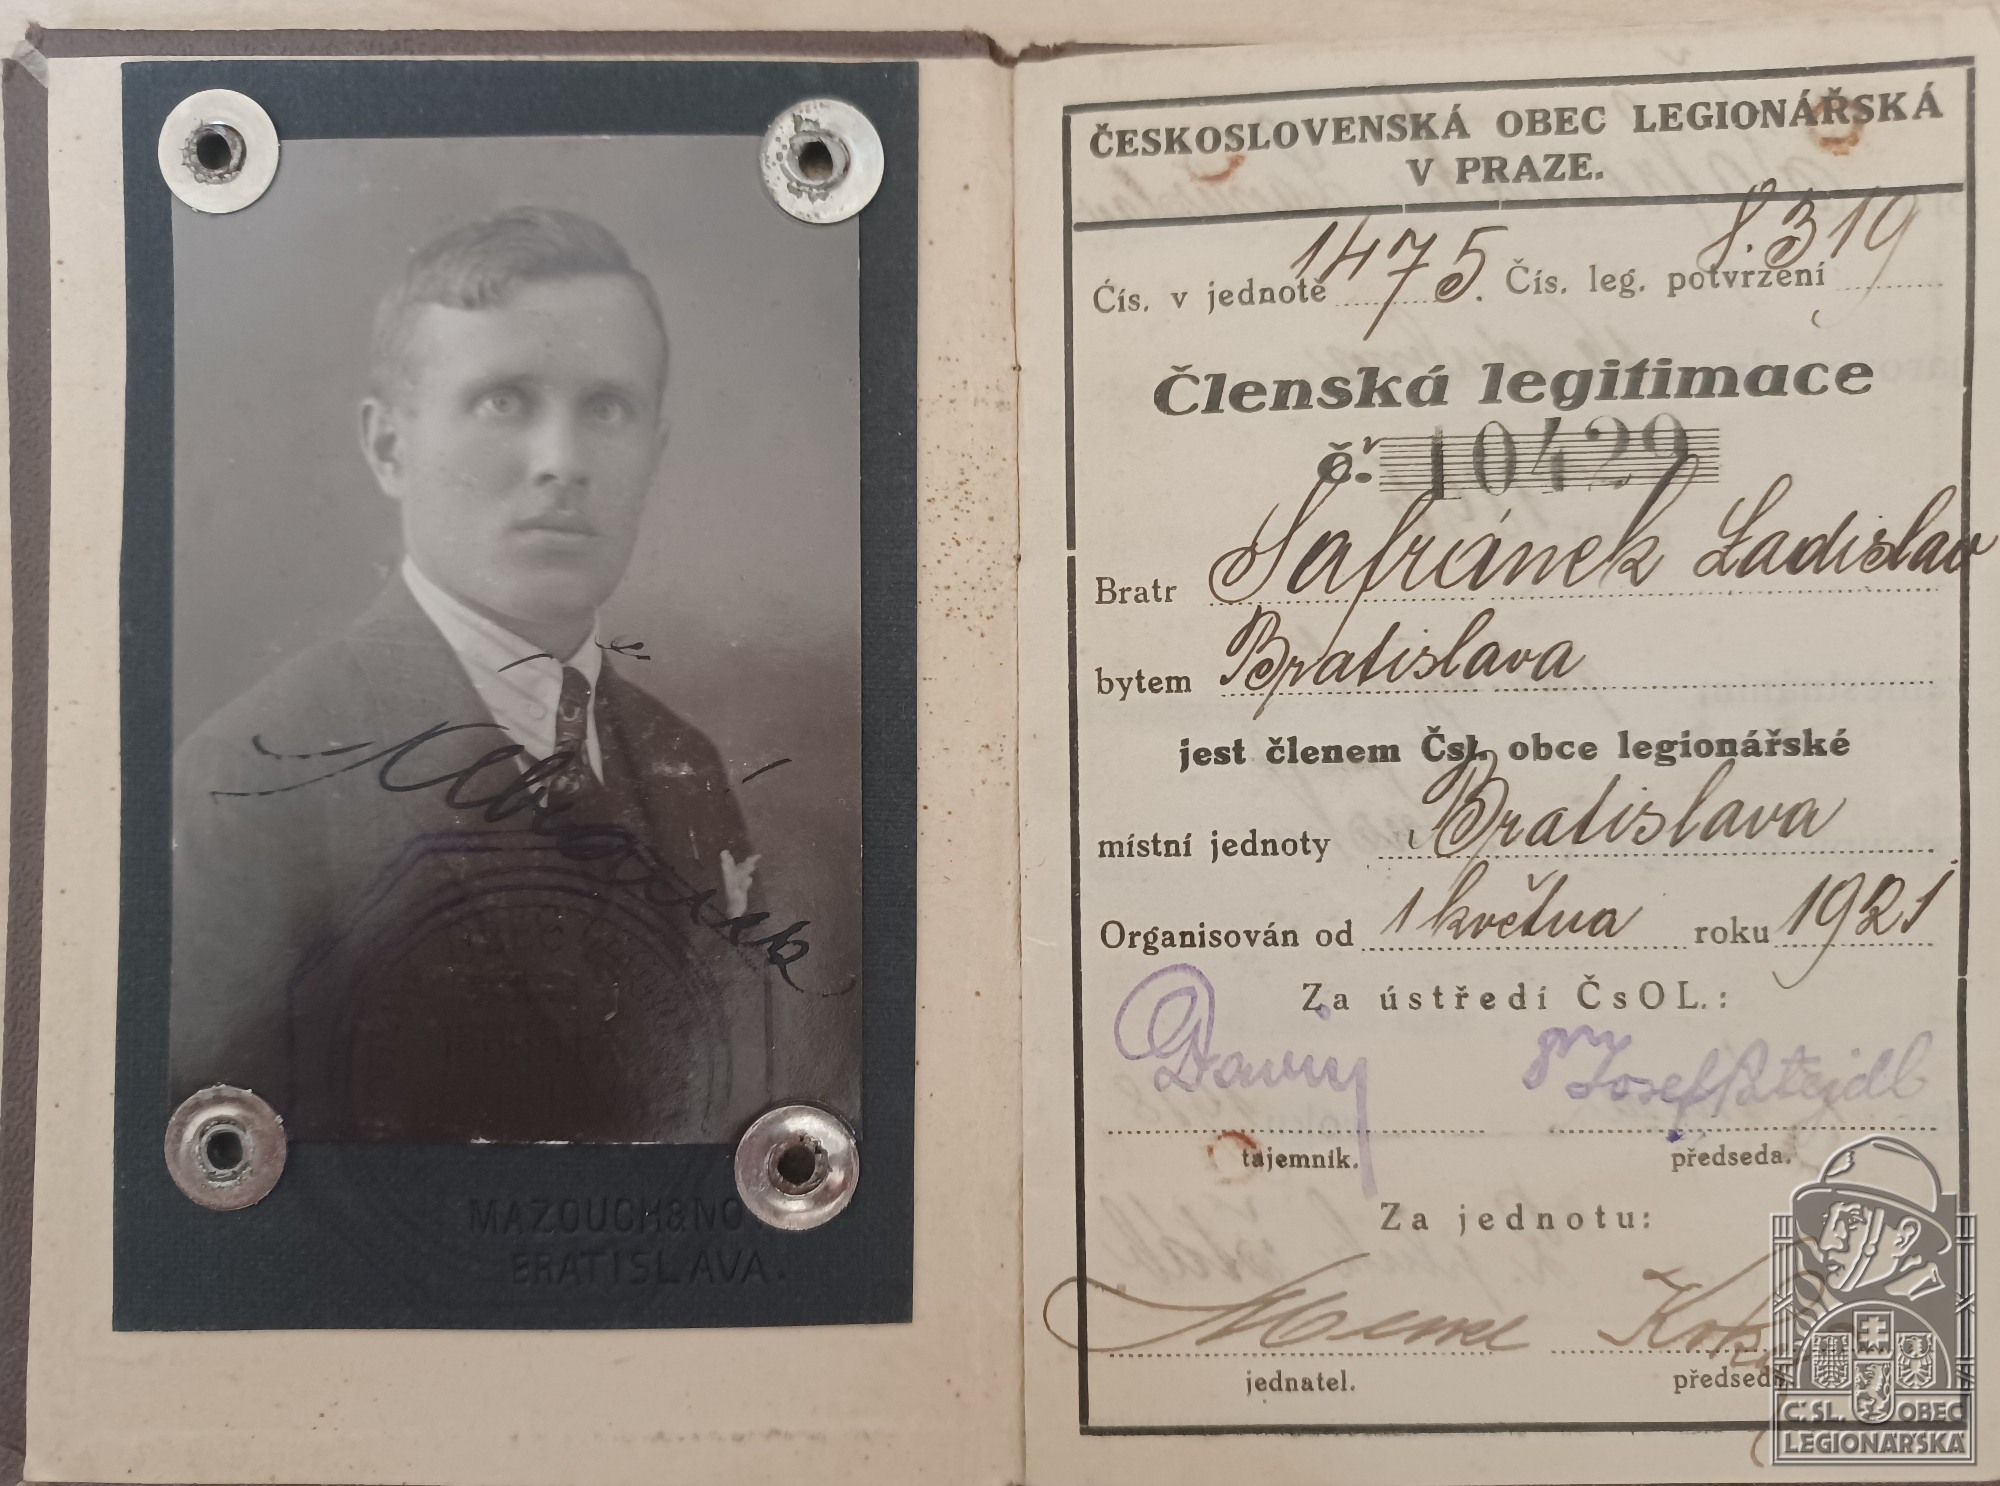 MAZOUCH&NO
BRATISLAVA.
ČESKOSLOVENSKÁ OBEC LEGIONÁŘSKÁ
V PRAZE.
Čís. v jednotě 1475. Čís. leg. potvrzení 319
Členská legitimace
č. 10429
Bratr Šafránek Ladislav
bytem Bratislava
jest členem Čsl. obce legionářské
místní jednoty Bratislava
Organisován od 1 května roku 1921
Za ústředí ČsOL.:
Josef
tajemník. předseda.
Za jednotu:
jednatel. předseda.
Č.SL. OBEC
LEGIONÁŘSKÁ